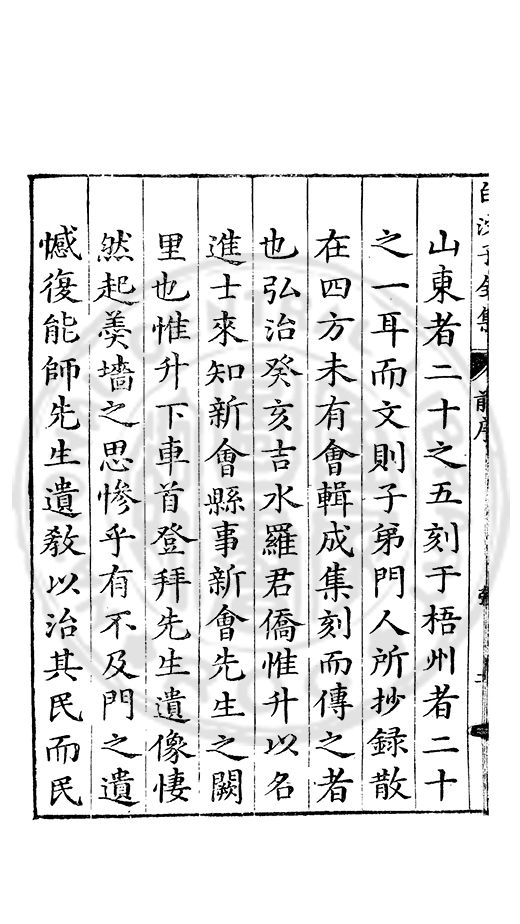 白沙子全集 前序
山東者二十之五刻于梧州者二十
之一耳而文則子弟門人所抄錄散
在四方未有會輯成集刻而傳之者
也弘治癸亥吉水羅君僑惟升以名
進士來知新會縣事新會先生之闕
里也惟升下車首登拜先生遺像悽
然起羮墻之思慘乎有不及門之遺
憾復能師先生遺敎以治其民而民